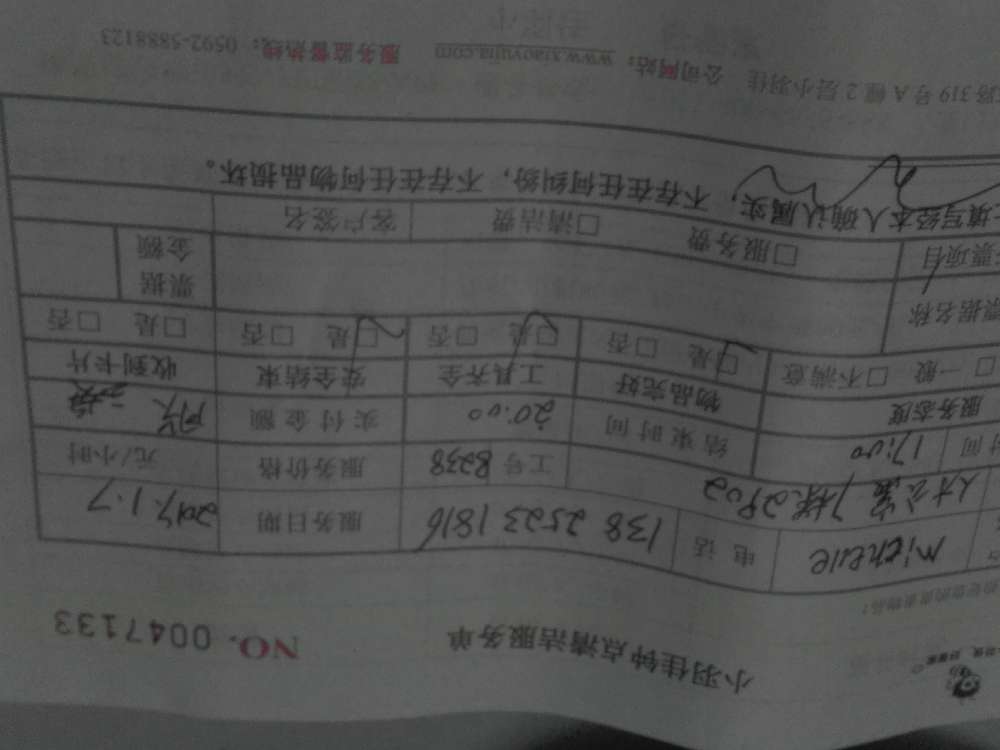 小羽佳钟点清洁服务单 NO. 0047133
michelle 电话 138 2523 1816 服务日期 2017.1.7
人才公寓7栋2902
17:00 工号 8238 服务价格 元/小时
结束时间 20:00 实付金额
服务态度 物品完好 工具齐全 安全结束 收到卡片
□一般 □不满意 □是 □否 □是 □否 □是 □否 □是 □否
票据名称 票据金额
票项目 □服务费 □清洁费 客户签名
填写经本人确认属实,不存在任何纠纷,不存在任何物品损坏。
路 319 号 A 幢 2 层小羽佳 公司网站:www.xiaoyujia.com 服务监督热线:0592-5888123